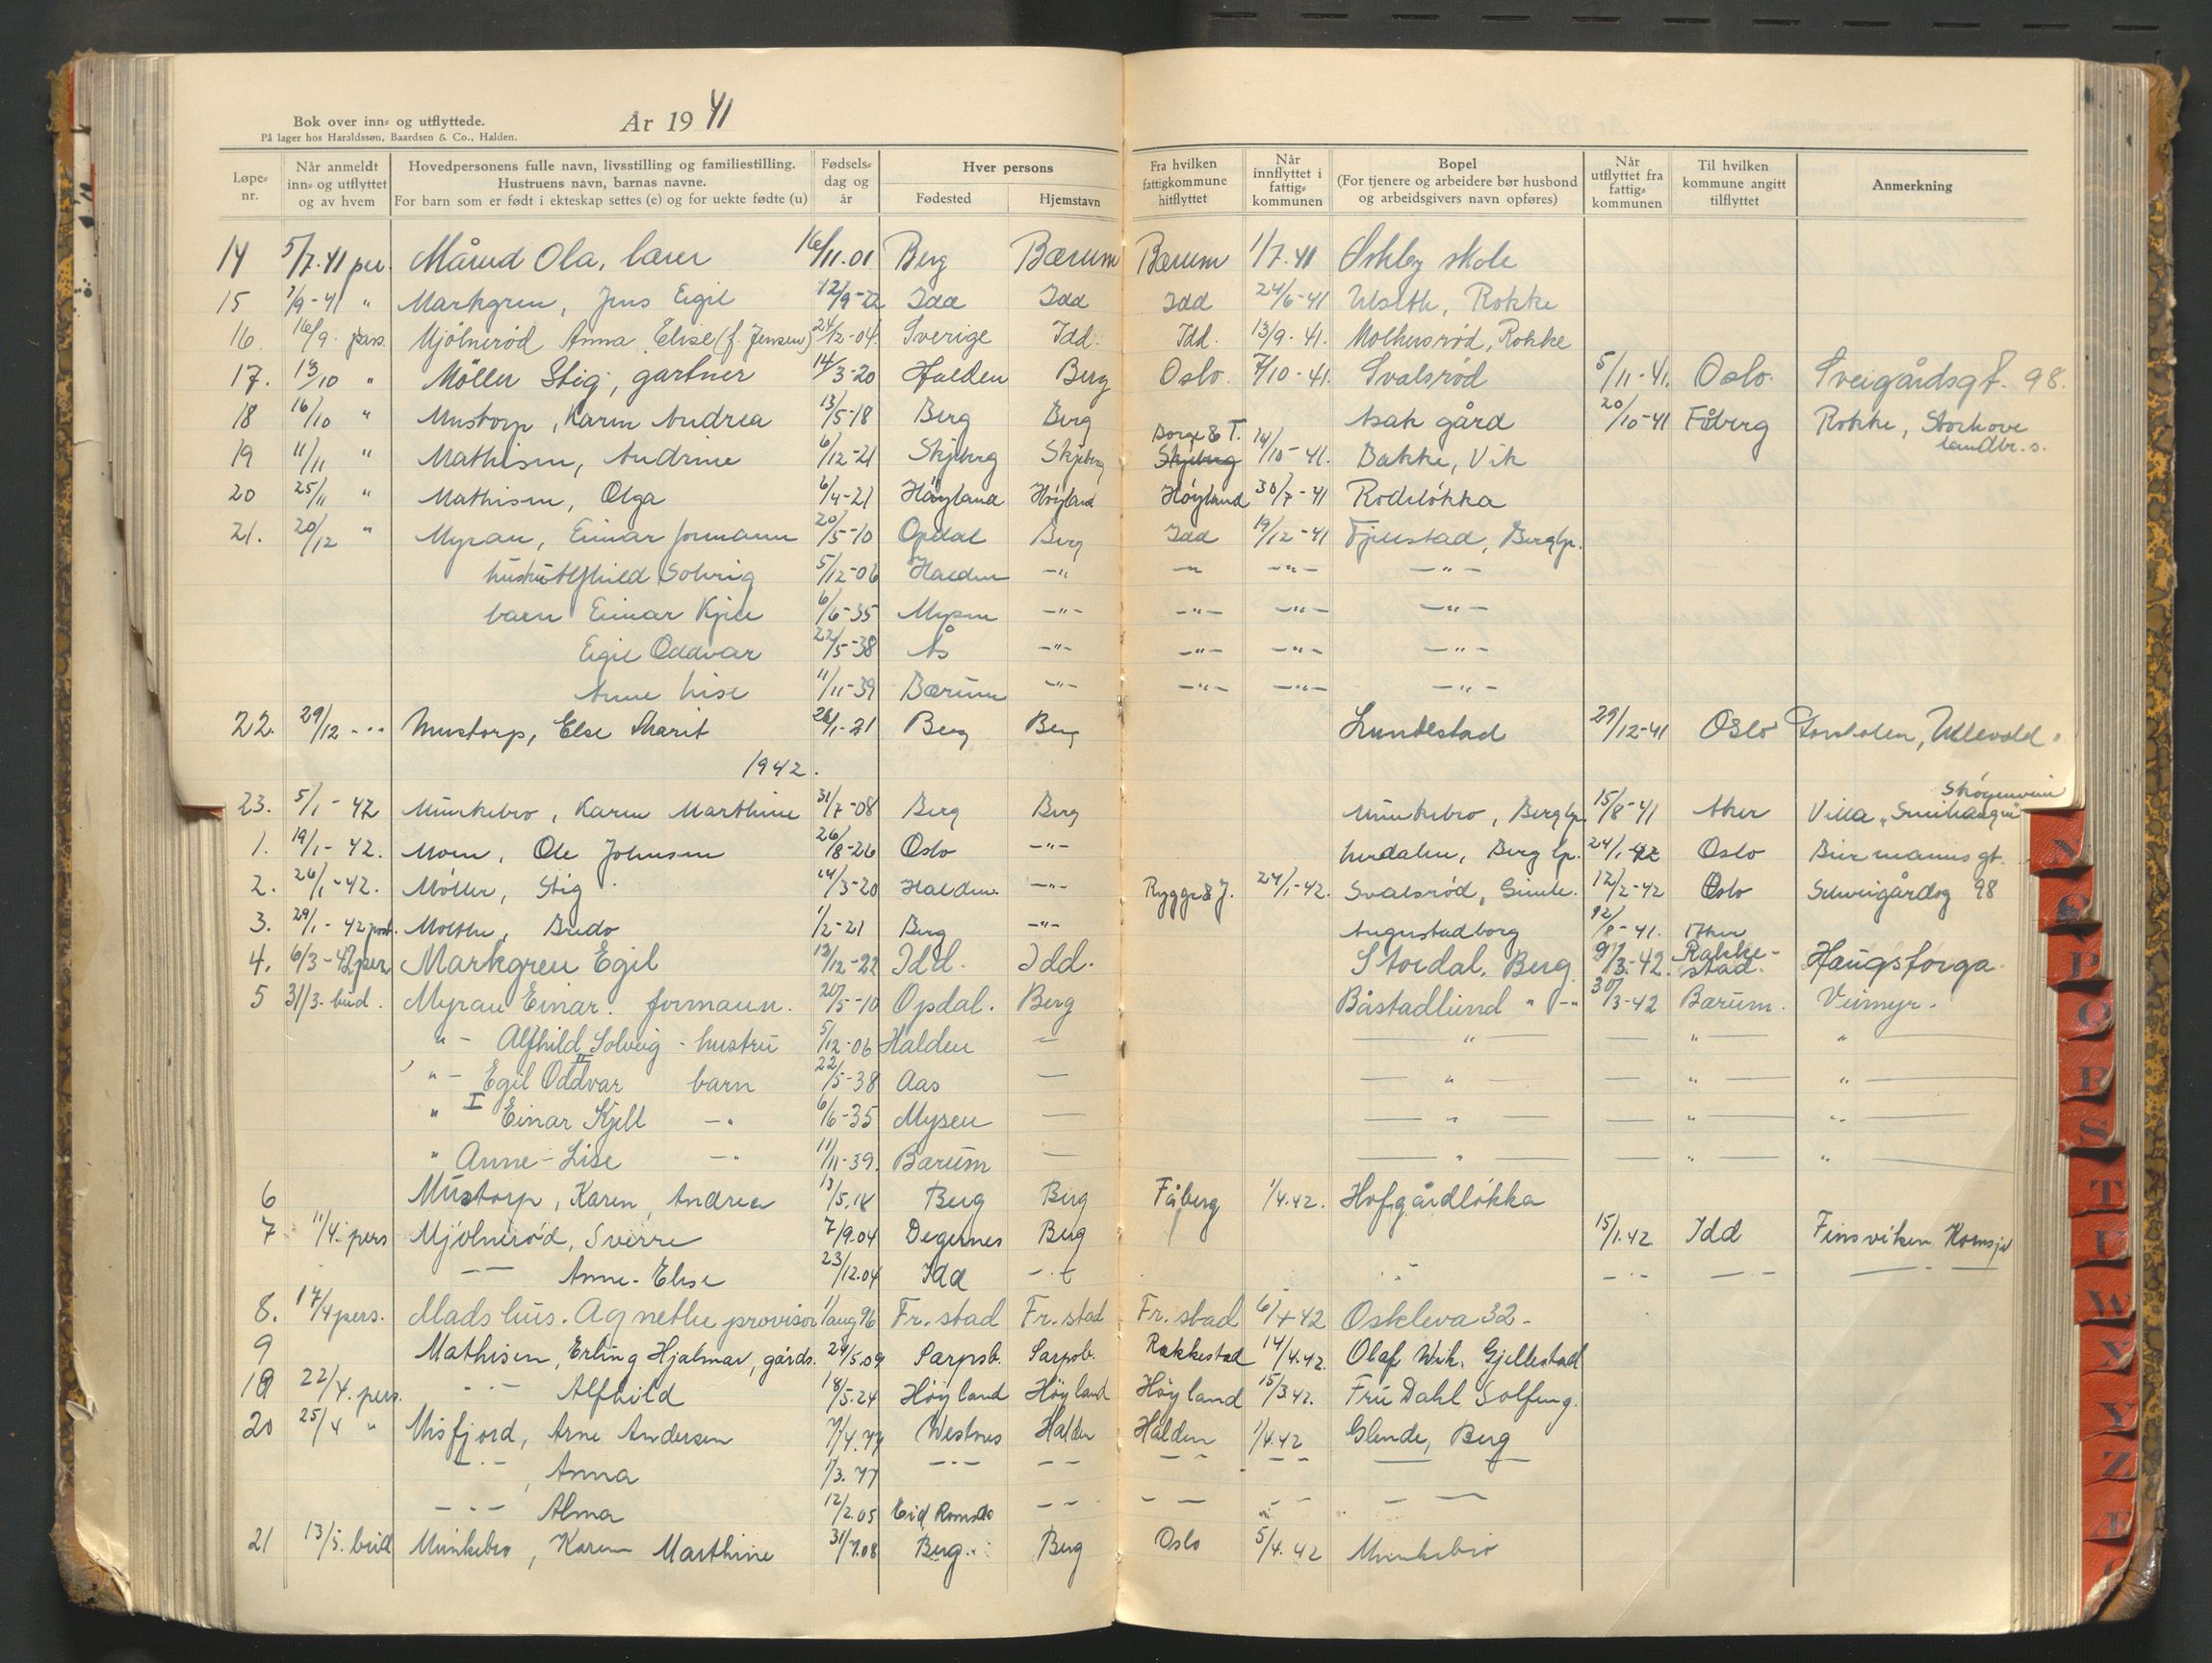 Bok over inn- og utflyttede.
På lager hos Haraldssøn, Baardsen & Co., Halden.
År 19 41
Løpe-nr. Når anmeldt inn- og utflyttet og av hvem Hovedpersonens fulle navn, livsstilling og familiestilling. Hustruens navn, barnas navne. For barn som er født i ekteskap settes (e) og for uekte fødte (u) Fødsels-dag og år Hver persons Fødested Hjemstavn Fra hvilken fattigkommune hitflyttet Når innflyttet i fattig-kommunen Bopel (For tjenere og arbeidere bør husbond og arbeidsgivers navn opføres) Når utflyttet fra fattig-kommunen Til hvilken kommune angitt tilflyttet Anmerkning
14 5/7-41 per. Mårud Ola, lærer 16/11.01 Berg Bærum Bærum 1/7.41 Øskby skole
15 1/9-41 " Markgren, Jens Egil 12/9-22 Idd Idd Idd 24/6-41 Ulseth, Rokke
16. 16/9. pers. Mjølnerød Anna Elise (f. Jensen) 24/12-04. Sverige Idd. Idd. 13/9.41. Molhusrød, Rokke
17. 13/10 " Möller Stig, gartner 14/3-20 Halden Berg Oslo. 7/10-41. Svalsrød 5/11-41. Oslo. Sveigårdsgt. 98.
18 16/10 " Mustorp, Karen Andrea 13/5-18 Berg Berg Asak gård 20/10-41 Fåberg Rokke, Storhove landbr.s.
19 11/11 " Mathisen, Andrine 6/12-21 Skjeberg Skjeberg Borge & T. Skjeberg 14/10-41. Bakke, Vik
20 25/11 " Mathisen, Olga 6/4-21 Høyland Høyland Høyland 30/7-41 Rødsløkka
21. 20/12 " Myran, Einar formann 20/5-10 Opdal Berg Idd 19/12-41 Fjellstad, Berg sp.
hustru Alfhild Solveig 5/12-06 Halden -"- -"- -"- -"-
barn Einar Kjell 6/6-35 Mysen -"- -"- -"- -"-
Egil Oddvar 22/5-38 Ås -"- -"- -"- -"-
Anne Lise 11/11-39 Bærum -"- -"- -"- -"-
22. 29/12 -"- Mustorp, Else Marit 26/1-21 Berg Berg Lundestad 29/12-41 Oslo Ullevold.
1942.
23. 5/1-42 Munkebro, Karen Marthine 31/7-08 Berg Berg Munkebro, Berg sp. 15/8-41 Aker Villa
1. 19/1-42. Moen, Ole Johnsen 26/8-26 Oslo -"- Lerdalen, Berg sp. 24/1-42 Oslo Biermanns gt.
2. 26/1-42. Möller, Stig 14/3-20 Halden. -"- Rygge & J. 24/1-42. Svalsrød, Gimle. 12/2-42 Oslo Schweigårdsg 98
3. 29/1-42 post. Molthe, Bredo 1/2-21 Berg -"- Augustadborg 12/8-41. Aker
4. 6/3-42 per. Markgren Egil 12/12-22 Idd. Idd. Stordal, Berg 9/3-42. Rakke-stad. Haugsforga
5 31/3- bud. Myran Einar. formann. 20/5-10 Opdal. Berg Båstadlund " -" 30/3-42 Bærum. Veimyr.
"- Alfhild Solveig - hustru 5/12-06 Halden - " " "
"- II Egil Oddvar barn 22/5-38 Aas - " " "
" I Einar Kjell -" 6/6-35 Mysen - " " "
" Anne-Lise -" 11/11-39. Bærum - " " "
6 Mustorp, Karen, Andrea 13/5.18 Berg Berg Fåberg 1/4.42. Hofgårdløkka
7 11/4. pers Mjølnerød, Sverre 7/9.04 Degernes Berg 15/1.42 Idd Finsviken, Kornsjø
-"- Anne-Elise 23/12.04 Idd -"- -"- -"- -"-
8. 17/4 pers. Madshus. Agnethe provisor 1/aug 96 Fr.stad Fr.stad Fr.stad 6/4 42 Oskleva 32-
9 Mathisen, Erling Hjalmar, gårds. 24/5.09 Sarpsb. Sarpsb. Rakkestad 14/4.42. Olaf Wik, Gjellestad
19 22/4. pers. -"- Alfhild 18/5.24 Høyland Høyland Høyland 15/3.42. Fru Dahl Solfeng.
20 25/4 " Misfjord, Arne Andersen 7/4.77 Westnes Halden Halden 1/4.42 Glende, Berg
-"- , Anna 1/3.77 -"- -"- -"- -"- -"-
-"- Alma 12/2.05 Eid Romsd. -"- -"- -"- -"-
21 13/5. bud Munkebro, Karen Marthine 31/7.08 Berg. Berg Oslo 5/4.42 Munkebro
N
O
P
Q
R
S
T
U
W
X
Y
Z
Æ